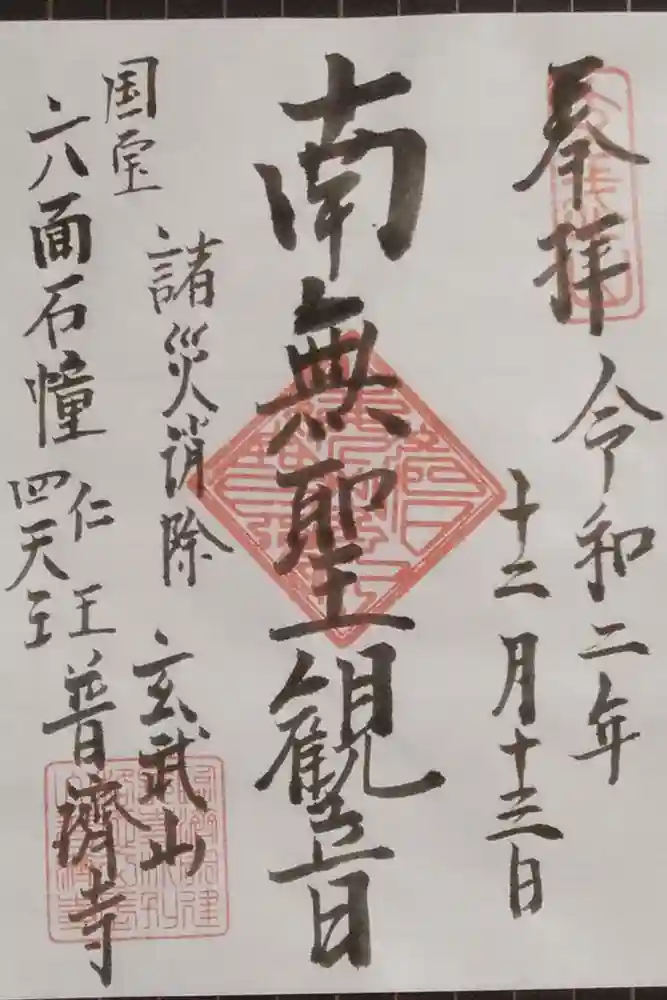 奉拝
令和二年
十二月十三日
南無聖観音
諸災消除
玄武山
国宝
六面石幢
仁王
四天王
普濟寺